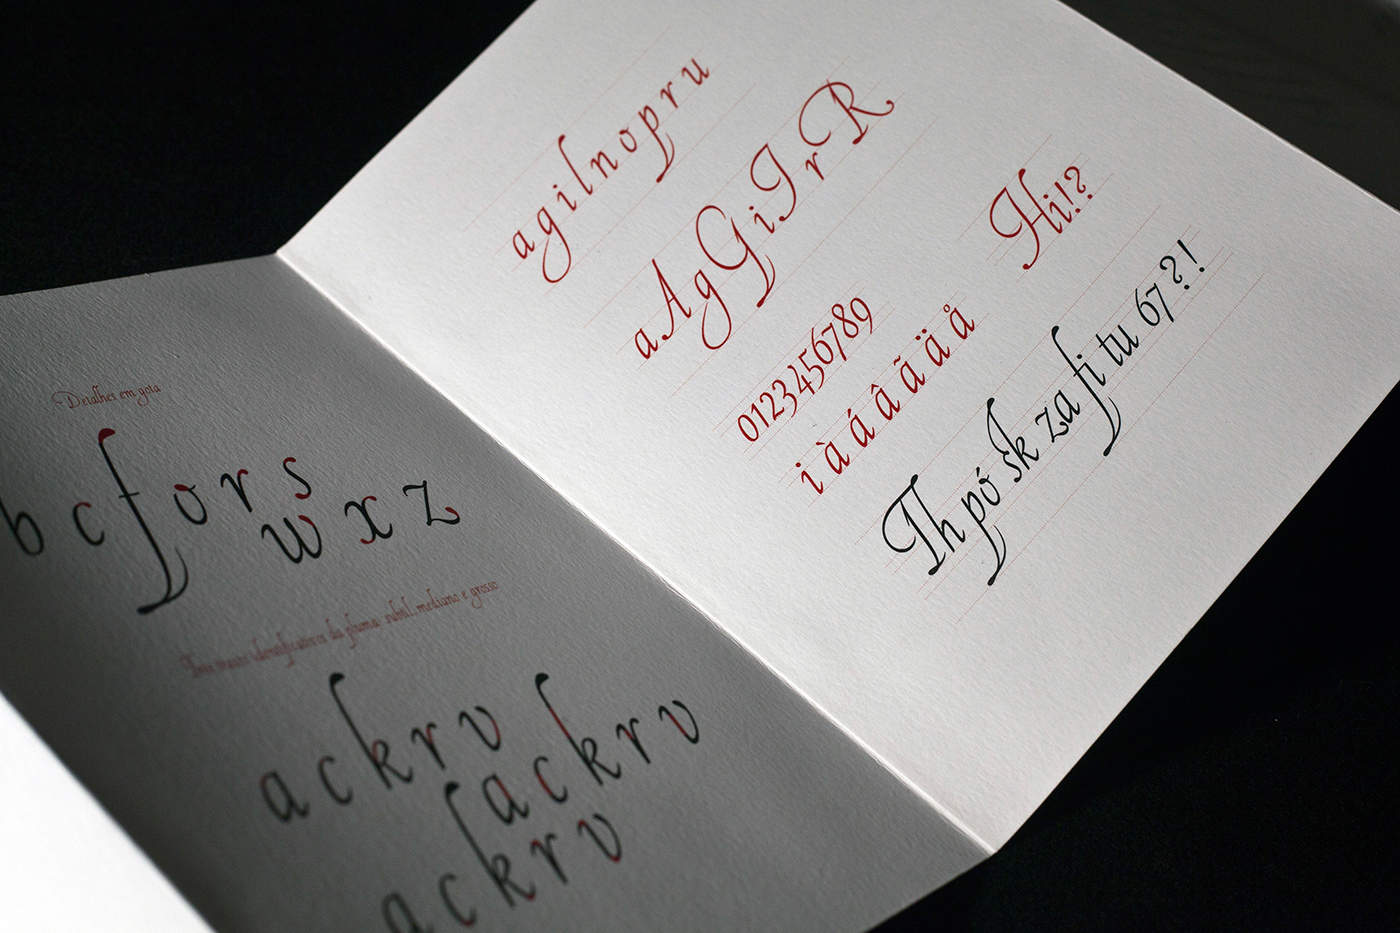 Detalhes em gota
b c f o r s
w x z
traços identificativos da pluma: subtil, mediano e grosso
a c k r v
a c k r v
a c k r v
a g i l n o p r u
a A g G i I r R
Hi!?
0123456789
i à á â ã ä å
Th pó sk za fi tu 67 ?!